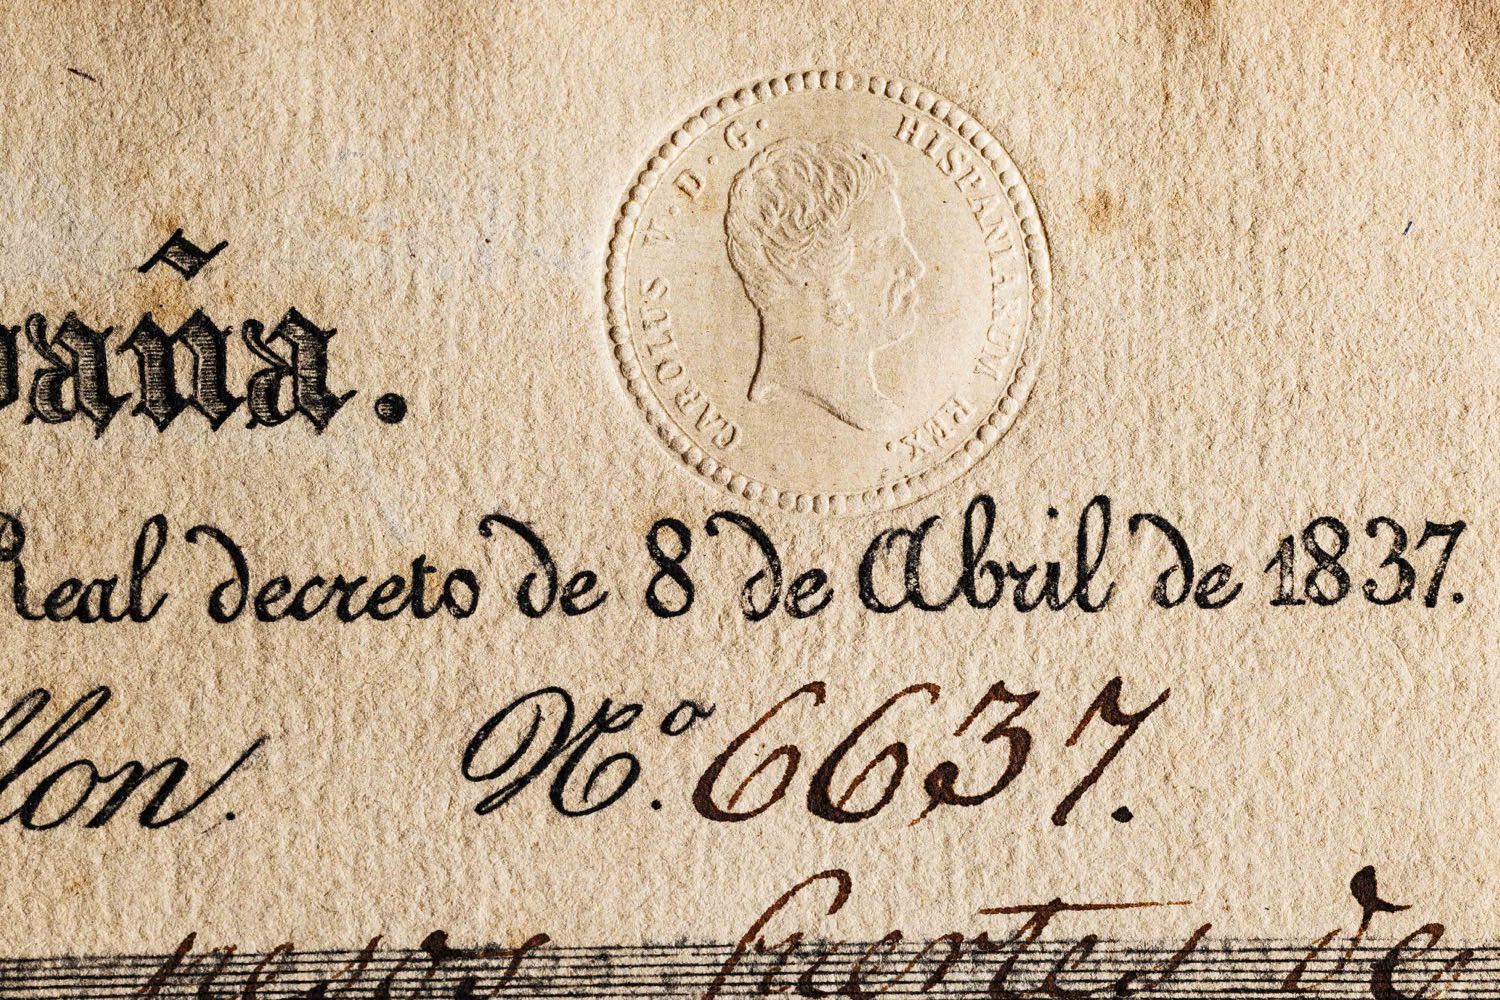 CAROLUS V. D. G. HISPANIARUM REX.
paña.
Real decreto de 8 de Abril de 1837.
llon. N.º 6637.
pesos fuertes de